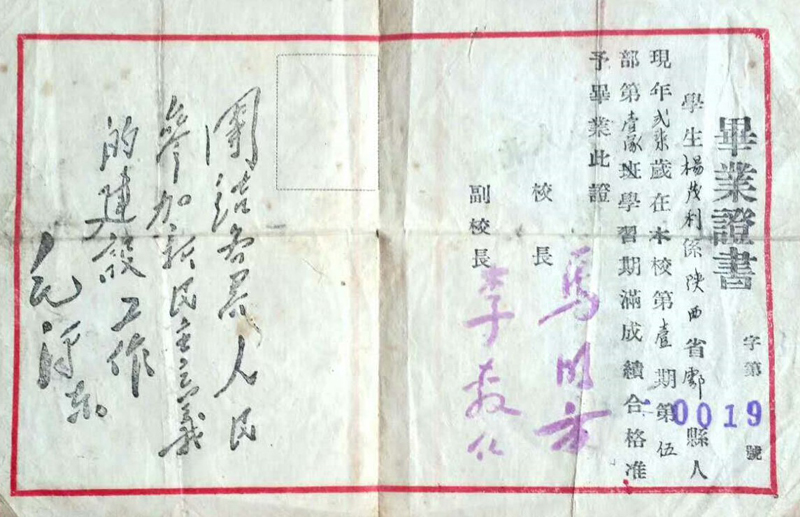 畢業證書
字第0019號
學生楊茂利係陝西省鄠縣人
現年弍柒歲在本校第壹期第伍
部第壹隊班學習期滿成績合格准
予畢業此證
校長 馬明方
副校長 李敷仁
團結各界人民
參加新民主主義
的建設工作
毛澤東